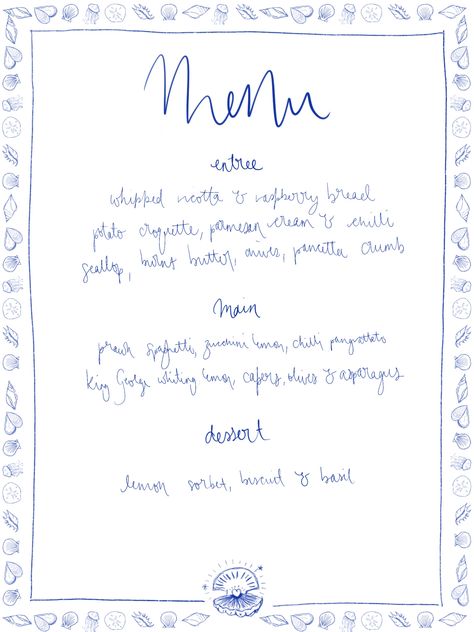 Menu
entree
whipped ricotta & raspberry bread
potato croquette, parmesan cream & chilli
scallop, burnt butter, chives, pancetta crumb
main
prawn spaghetti, zucchini lemon, chilli pangrattato
King George whiting lemon, capers, olives & asparagus
dessert
lemon sorbet, biscuit & basil